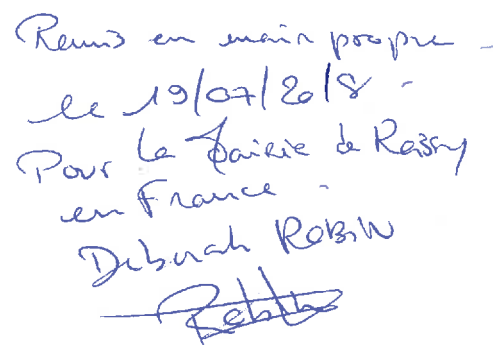 Remis en main propre -
le 19/07/2018 -
Pour la Mairie de Roissy
en France -
Déborah ROBIN